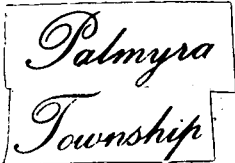 Palmyra
Township